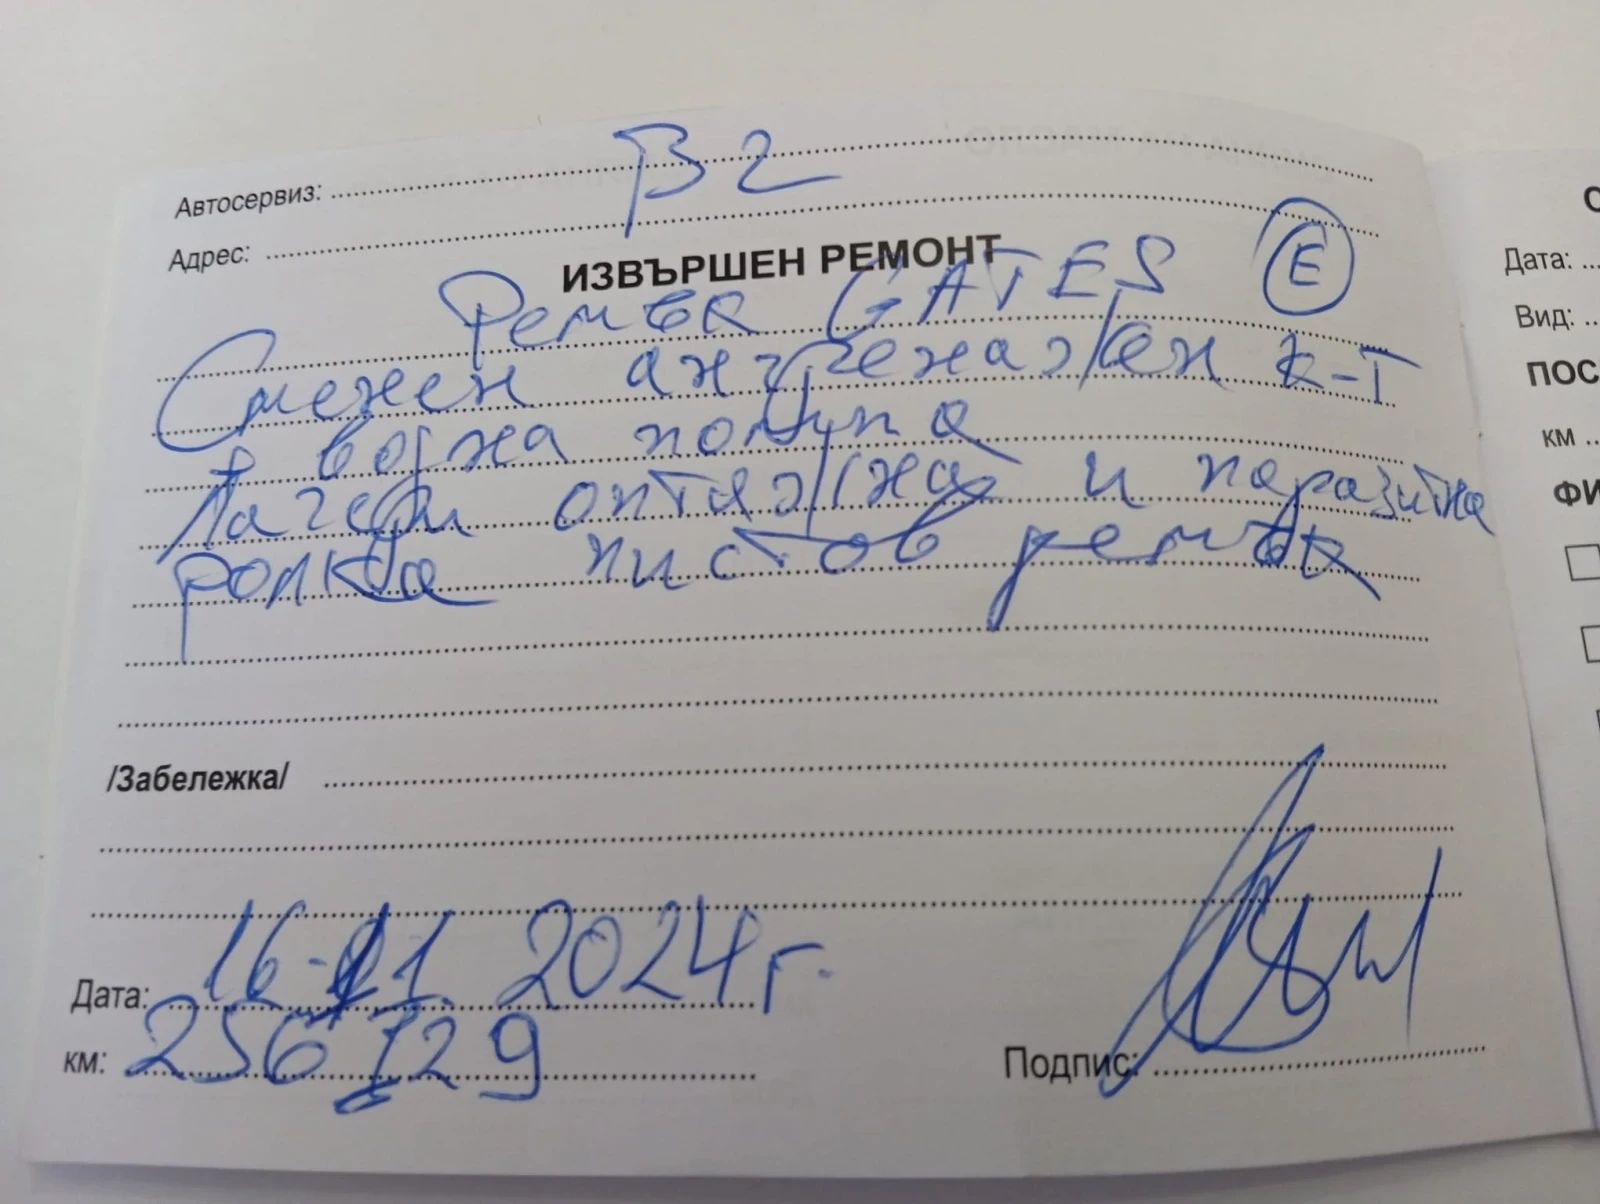 Автосервиз: B2
Адрес:
ИЗВЪРШЕН РЕМОНТ
Ремък GATES Е
Сменен ангренажен к-т
водна помпа
Лагери оптяжна и паразитна
ролка пистов ремък
/Забележка/
Дата: 16.11.2024г.
км: 256729
Подпис:
С
Дата:
Вид:
ПОС
км
ФИ